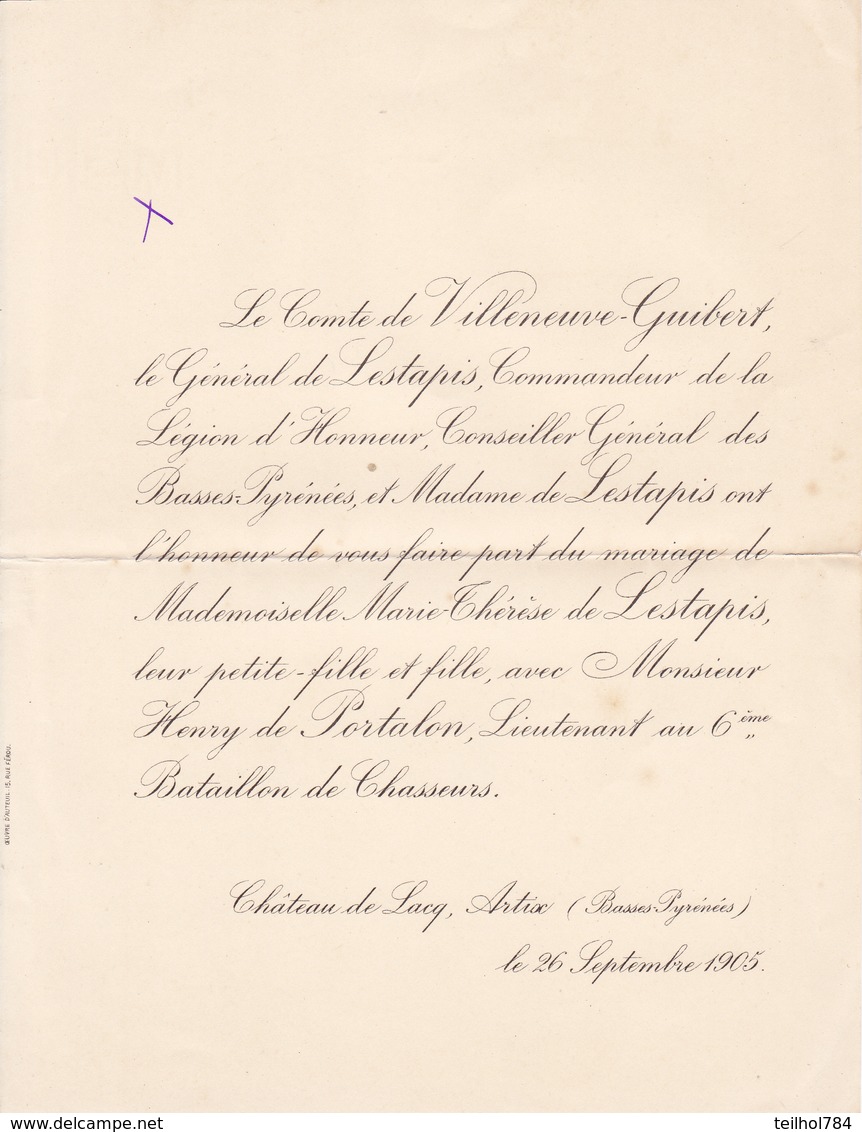 Le Comte de Villeneuve-Guibert,
le Général de Lestapis, Commandeur de la
Légion d'Honneur, Conseiller Général des
Basses-Pyrénées, et Madame de Lestapis ont
l'honneur de vous faire part du mariage de
Mademoiselle Marie-Thérèse de Lestapis,
leur petite-fille et fille, avec Monsieur
Henry de Portalon, Lieutenant au 6ème
Bataillon de Chasseurs.
Château de Lacq, Artix (Basses-Pyrénées)
le 26 Septembre 1905.
ŒUVRE D'AUTEUIL. 15, RUE FÉROU.
www.delcampe.net
teilhol784